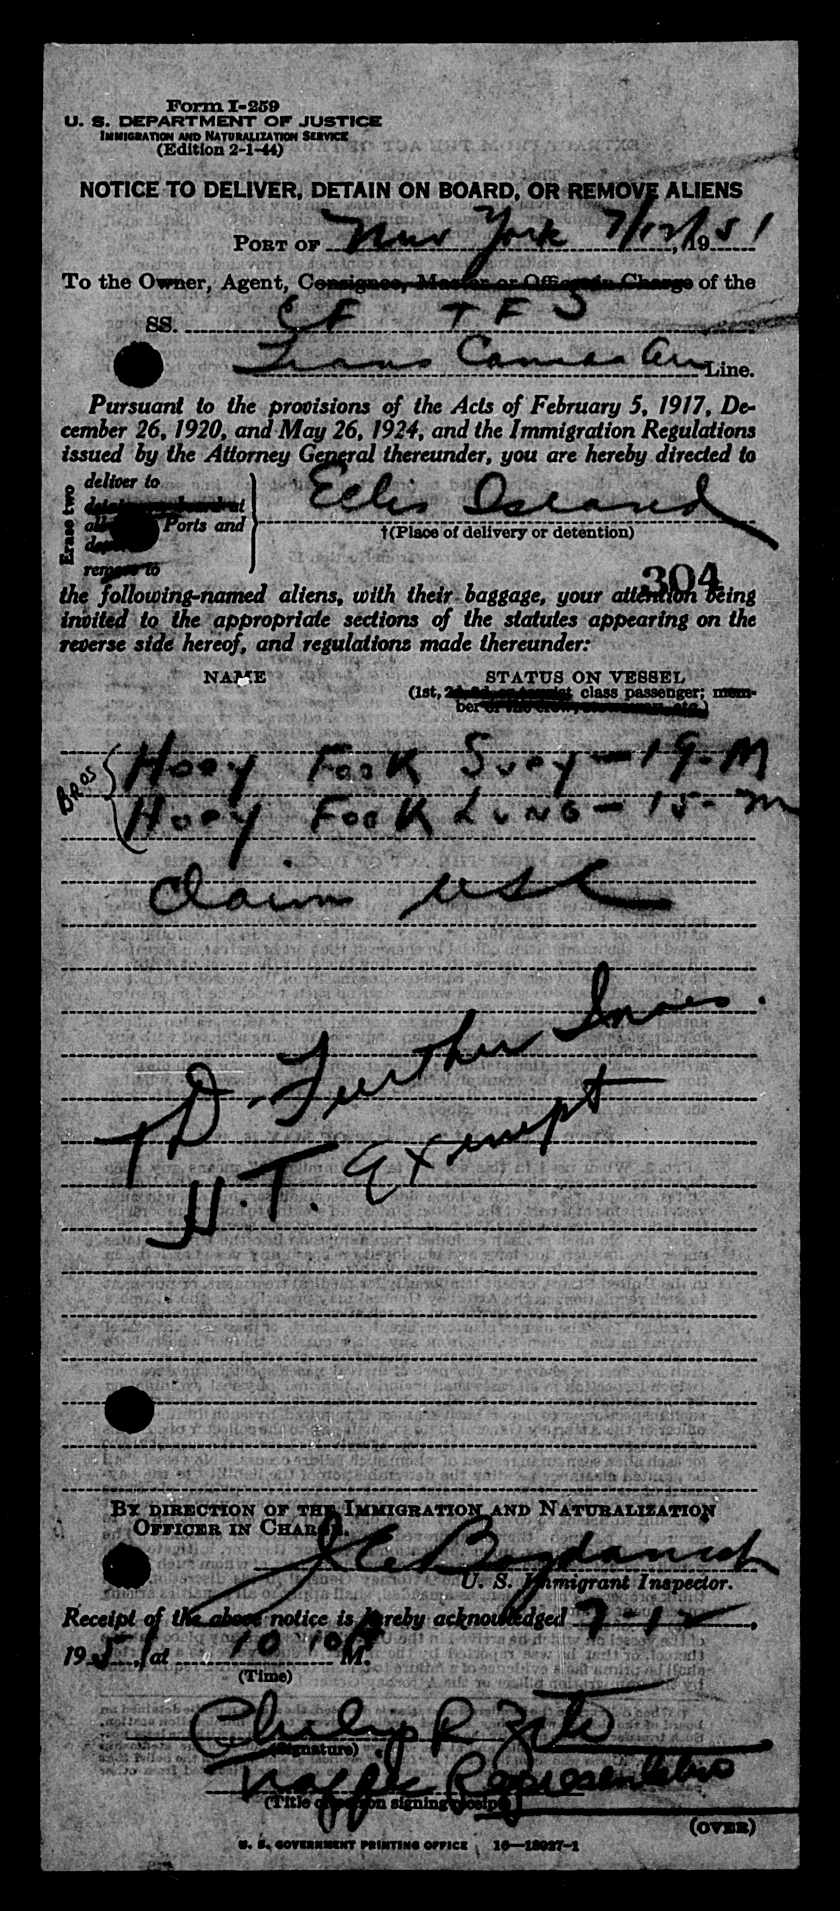 Form I-259
U. S. DEPARTMENT OF JUSTICE
IMMIGRATION AND NATURALIZATION SERVICE
(Edition 2-1-44)
NOTICE TO DELIVER, DETAIN ON BOARD, OR REMOVE ALIENS
PORT OF New York 7/12/, 1951
To the Owner, Agent, Consignee, Master or Officer in Charge of the
SS. CF TFS
Trans Canada Air Line.
Pursuant to the provisions of the Acts of February 5, 1917, De-
cember 26, 1920, and May 26, 1924, and the Immigration Regulations
issued by the Attorney General thereunder, you are hereby directed to
Erase two
deliver to
Ports and
remove to
Ellis Island
†(Place of delivery or detention)
304
the following-named aliens, with their baggage, your attention being
invited to the appropriate sections of the statutes appearing on the
reverse side hereof, and regulations made thereunder:
NAME STATUS ON VESSEL
(1st, class passenger; mem-
ber of the crew,
Bros { Hoey Fook Suey - 19 - M
Hoey Fook Lung - 15 - M
Claim USC
TD - Further Inves.
H.T. Exempt
BY DIRECTION OF THE IMMIGRATION AND NATURALIZATION
OFFICER IN CHARGE.
U. S. Immigrant Inspector.
Receipt of the above notice is hereby acknowledged 7-12,
1951, at 10 10 P M.
(Time)
R.
(Signature)
Traffic Representative
(Title of person signing receipt)
(OVER)
U. S. GOVERNMENT PRINTING OFFICE 16—13927-1